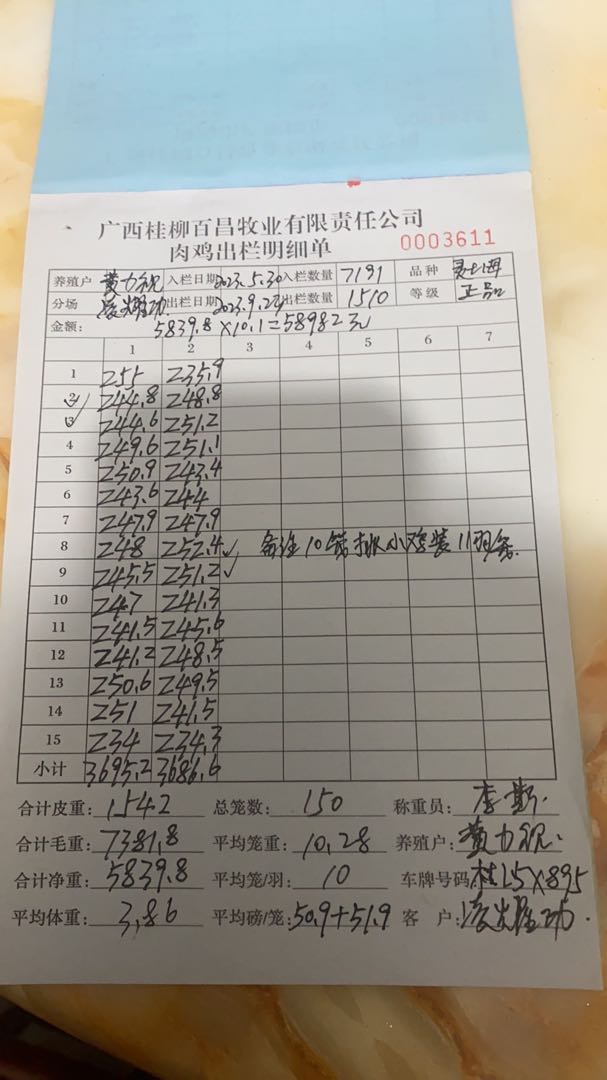 广西桂柳百昌牧业有限责任公司
肉鸡出栏明细单 0003611
养殖户 黄力 入栏日期 2023.5.30 入栏数量 7191 品种
分场 出栏日期 2023.9.24 出栏数量 1510 等级 正品
金额: 5839.8×10.1=58982元
1 2 3 4 5 6 7
1 255 235.9
2 244.8 248.8
3 244.6 251.2
4 249.6 251.1
5 250.9 243.4
6 243.6 244
7 247.9 247.9
8 248 252.4 备注10笼 小鸡装11羽
9 245.5 251.2
10 247 241.3
11 241.5 245.6
12 241.2 248.5
13 250.6 249.5
14 251 241.5
15 234 234.3
小计 3695.2 3686.6
合计皮重: 1542 总笼数: 150 称重员: 李
合计毛重: 7381.8 平均笼重: 10.28 养殖户: 黄力
合计净重: 5839.8 平均笼/羽: 10 车牌号码: 桂L5X895
平均体重: 3.86 平均磅/笼: 50.9+51.9 客户: